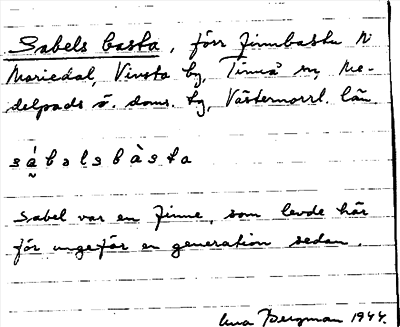 Sabels basta, förr finnbastu N
Mariedal, Vivsta by, Timrå sn, Me-
delpads ö. doms. tg, Västernorrl. län
sábəlsbàsta
Sabel var en finne, som levde här
för ungefär en generation sedan.
Bergman 1944.